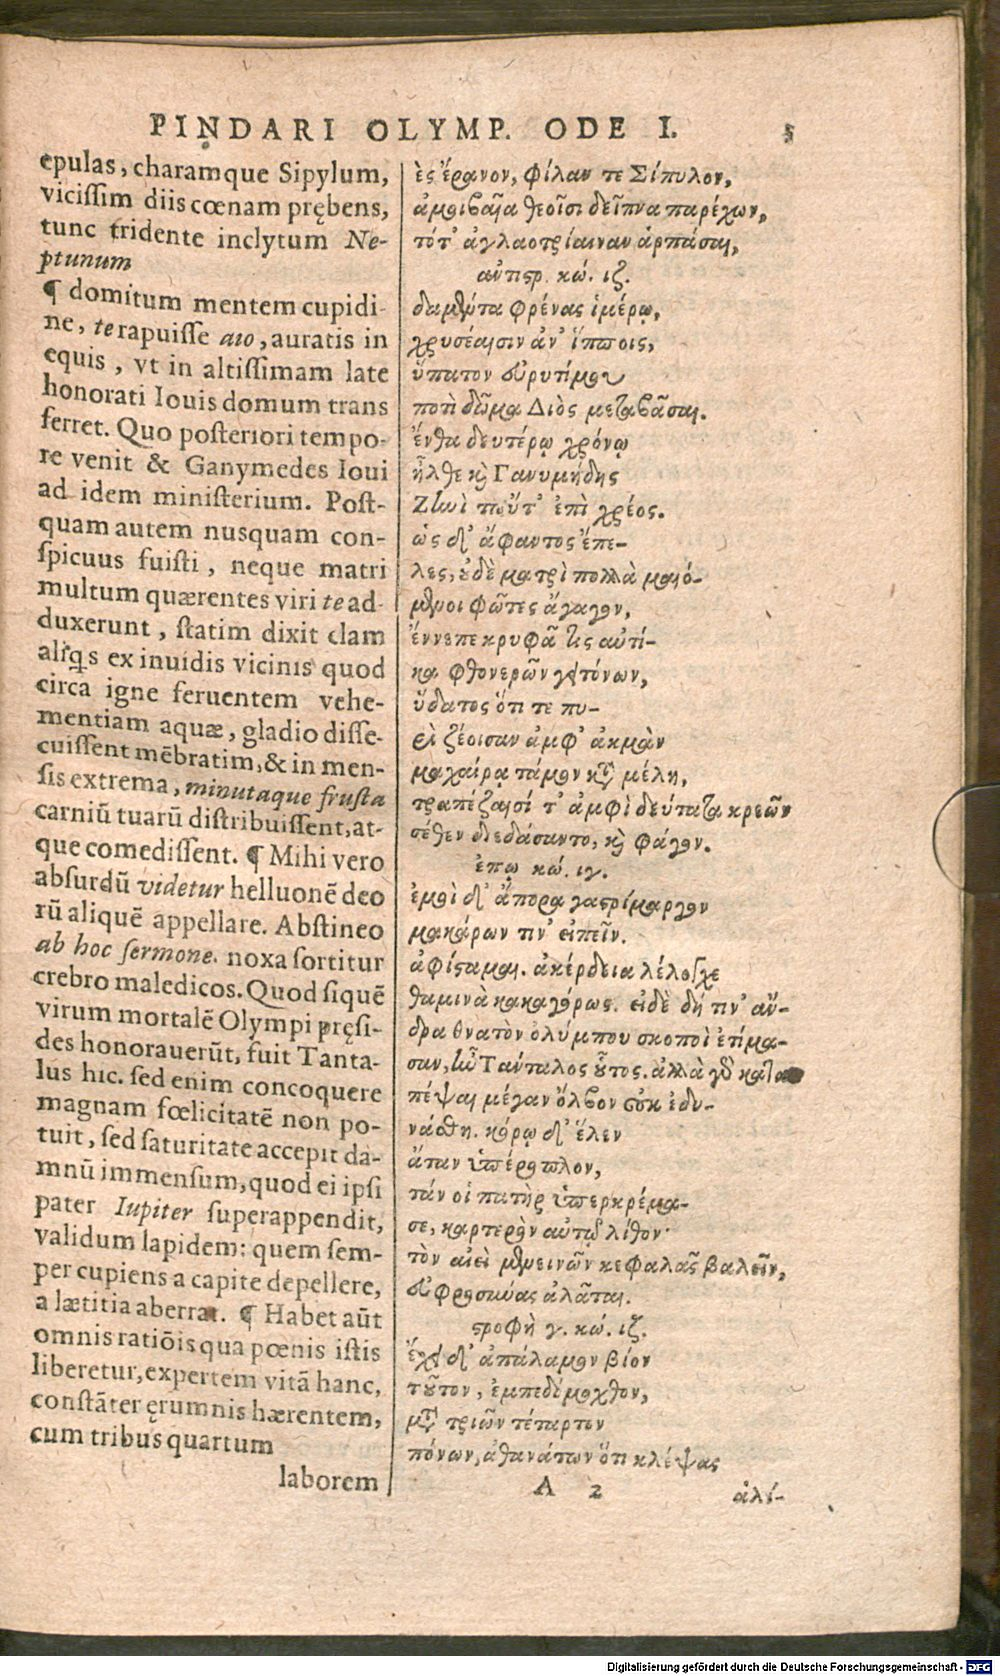 PINDARI OLYMP. ODE I. 5
epulas, charamque Sipylum,
vicissim diis cœnam prębens,
tunc tridente inclytum Ne-
ptunum
¶ domitum mentem cupidi-
ne, te rapuisse aio, auratis in
equis, vt in altissimam late
honorati Iouis domum trans
ferret. Quo posteriori tempo-
re venit & Ganymedes Ioui
ad idem ministerium. Post-
quam autem nusquam con-
spicuus fuisti, neque matri
multum quærentes viri te ad-
duxerunt, statim dixit clam
aliq̃s ex inuidis vicinis quod
circa igne feruentem vehe-
mentiam aquæ, gladio disse-
cuissent mẽbratim, & in men-
sis extrema, minutaque frusta
carniũ tuarũ distribuissent, at-
que comedissent. ¶ Mihi vero
absurdũ videtur helluonẽ deo
rũ aliquẽ appellare. Abstineo
ab hoc sermone. noxa sortitur
crebro maledicos. Quod siquẽ
virum mortalẽ Olympi pręsi-
des honorauerũt, fuit Tanta-
lus hic. sed enim concoquere
magnam fœlicitatẽ non po-
tuit, sed saturitate accepit dã-
mnũ immensum, quod ei ipsi
pater Iupiter superappendit,
validum lapidem: quem sem-
per cupiens a capite depellere,
a lætitia aberrat. ¶ Habet aũt
omnis ratiõis qua pœnis istis
liberetur, expertem vitã hanc,
constãter ęrumnis hærentem,
cum tribus quartum
laborem
ἐς ἔρανον, φίλαν τε Σίπυλον,
ἀμοιβαῖα θεοῖσι δεῖπνα παρέχων,
τότ' ἀγλαοτρίαιναν ἁρπάσαι,
αντιστρ. κώ. ιζ.
δαμέντα φρένας ἱμέρῳ,
χρυσέαισιν ἀν' ἵπποις,
ὕπατον εὐρυτίμου
ποτὶ δῶμα Διὸς μεταβᾶσαι.
ἔνθα δευτέρῳ χρόνῳ
ἦλθε καὶ Γανυμήδης
Ζηνὶ τωὔτ' ἐπὶ χρέος.
ὡς δ' ἄφαντος ἔπε-
λες, οὐδὲ ματρὶ πολλὰ μαιό-
μενοι φῶτες ἄγαγον,
ἔννεπε κρυφᾶ τὶς αὐτί-
κα φθονερῶν γειτόνων,
ὕδατος ὅτι τε πυ-
ρὶ ζέοισαν ἀμφ' ἀκμὰν
μαχαίρᾳ τάμον κατὰ μέλη,
τραπέζαισί τ' ἀμφὶ δεύτατα κρεῶν
σέθεν διεδάσαντο, καὶ φάγον.
ἐπῳ κώ. ιγ.
ἐμοὶ δ' ἄπορα γαστρίμαργον
μακάρων τιν' εἰπεῖν.
ἀφίσταμαι. ἀκέρδεια λέλογχε
θαμινὰ κακαγόρως. εἰδὲ δή τιν' ἄν-
δρα θνατὸν ὀλύμπου σκοποὶ ἐτίμα-
σαν, ἦν Τάνταλος οὗτος. ἀλλὰ γὰρ κατα
πέψαι μέγαν ὄλβον οὐκ ἐδυ-
νάσθη. κόρῳ δ' ἕλεν
ἄταν ὑπέροπλον,
τάν οἱ πατὴρ ὑπερκρέμα-
σε, καρτερὸν αὐτῷ λίθον·
τὸν αἰεὶ μενεινῶν κεφαλᾶς βαλεῖν,
εὐφροσύνας ἀλᾶται.
στροφὴ γ. κώ. ιζ.
ἔχει δ' ἀπάλαμον βίον
τοῦτον, ἐμπεδόμοχθον,
μετὰ τριῶν τέταρτον
πόνων, ἀθανάτων ὅτι κλέψας
A 2 ἁλί-